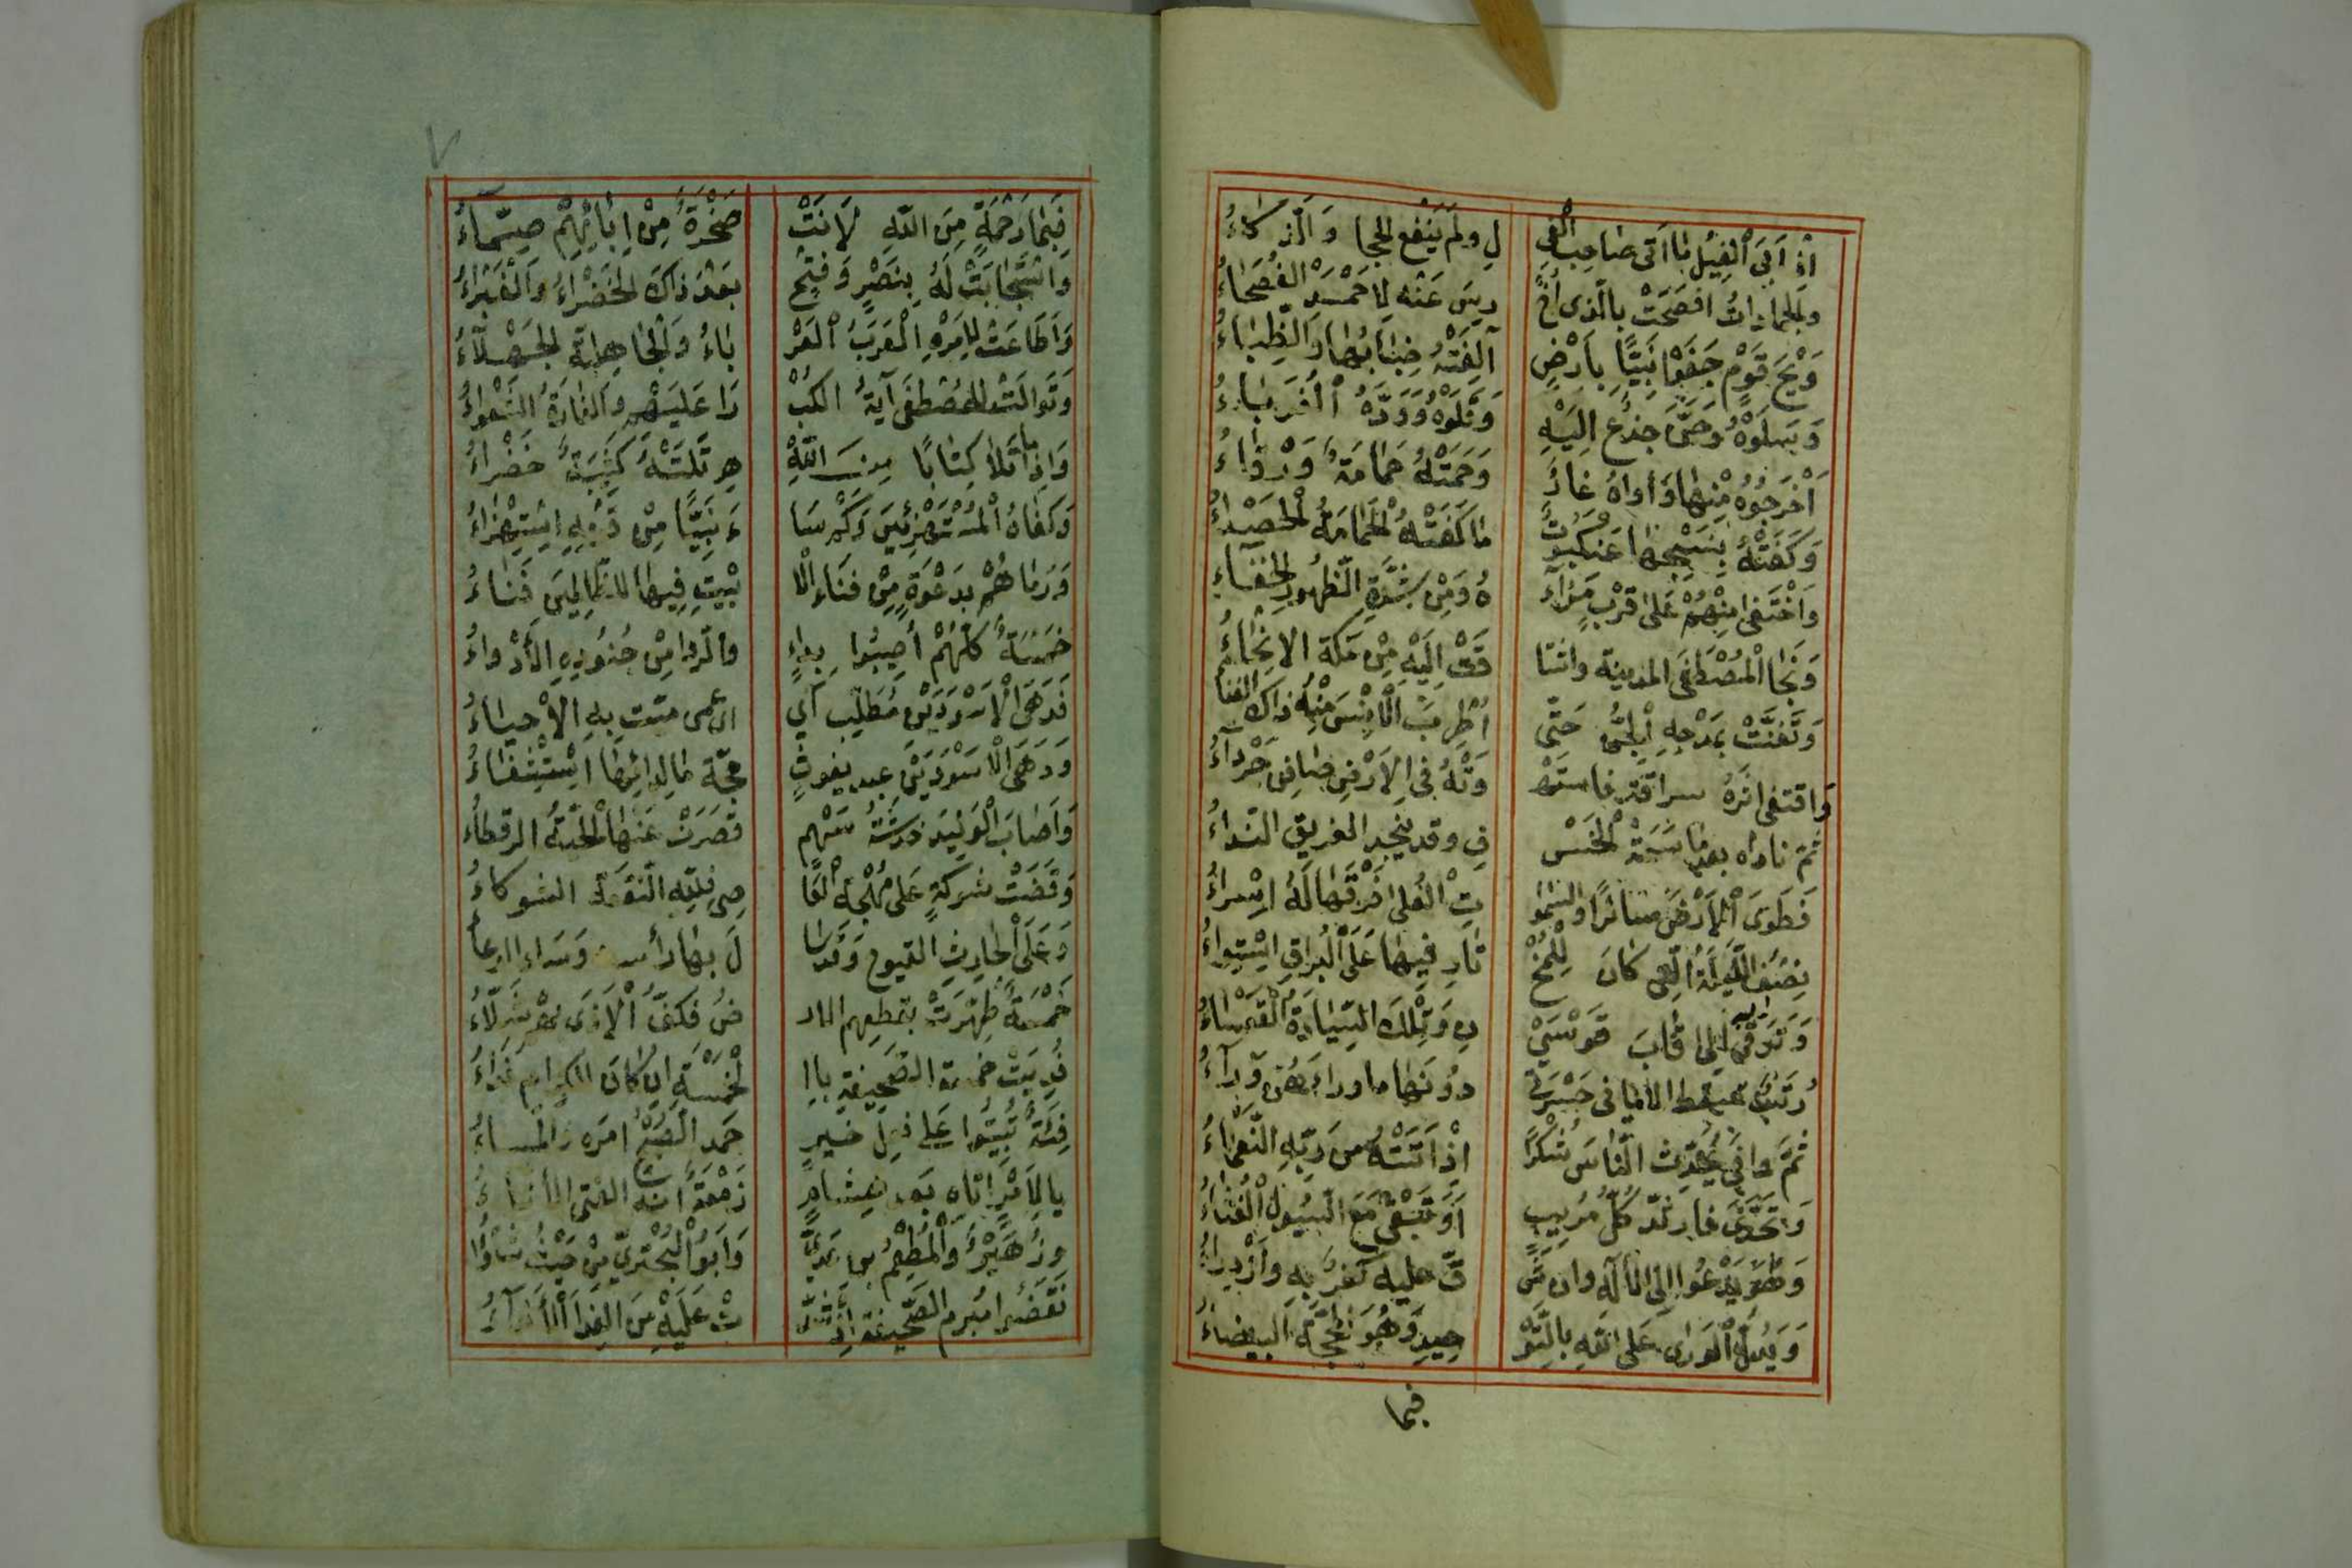 اذ اَبَى الْفِيلُ مَا اَتَى صَاحِبُ الْفِي لِ ولَمْ يَنْفَعِ الحِجا وَالذَّكَاءُ
والجماداتُ افصَحَتْ بالَّذى اُخْ رِسَ عَنْه لِاَحْمَدَ الْفُصَحَاءُ
وَيْحَ قَوْمٍ جَفَوْا نَبِيًّا بِاَرْضٍ آلِفَتْهُ ضِبَابُهَا وَالظِّبَاءُ
وَسَلَوْهُ وَحَنَّ جِذْعٌ اِلَيْهِ وَقَلَوْهُ وَوَدَّهُ الْغُرَبَاءُ
اَخْرَجُوُه مِنْهَا وَأواهُ غارٌ وَحَمَتْهُ حَمَامَةٌ وَرْقَاءُ
وَكَفَتْهُ بِنَسْجِهَا عَنْكَبُوتٌ مَا كَفَتْهُ الْحَمَامَةُ الْحَصْدَاءُ
وَاخْتَفَى مِنْهُمْ عَلَى قُرْبِ مَرْآ هُ وَمِنْ شِدَّةِ الظُّهُورِ الْخَفَاءِ
وَنَحَا الْمُصْطَفَى المدينة واشتا قَتْ اِلَيْهِ مِنْ مَكَّة الانْحَاءُ
وَتَغَنَّتْ بِمَدْحِهِ الْجِنُّ حَتَّى اَطْرَبَ الْاِنْسَ مِنْهُ ذاك الغنا
وَاقتفى اثَرَهُ سراقة فاستَهْ وَتْهُ فِى الْاَرْضِ صَافِن جَرْدَآءُ
ثُمَّ ناداه بعد مَا سِيمَتْ الْخَسْ فِ وقد يُنْجِدُ الغريق النِّداءُ
فَطَوَى الْاَرْضَ سائرًا والسَّمٰوا تِ الْعُلَى فَوْقَهَا لَهُ اِسْراءُ
نِصْفُ اللَّيْلَةُ الَّتى كَانَ لِلْمُخْ تَارِ فِيهَا عَلَى الْبُرَاقِ اسْتِوَاءُ
وَتَرَقَّى بِه اِلَى قَابَ قَوْسَيْ نِ وَتِلْكَ السِّيَادَةُ الْقَعْسَاءُ
رُتَبٌ تسقط الامانى حَسْرَىٰ دُونَهَا ما وراءَ هُنَّ وَرَآءُ
ثُمَّ وافَى يُحَدِّث النَّاسَ شُكْرًا اِذْ اَتَتْهُ من رَبِّهِ النَّعْمَاءُ
وَتَحَدَّى فارتَدَّ كُلُّ مُرِيبٍ اَوَ تَبْقَى مَعَ السُّيُولِ الْغُثَاءُ
وَهُوَ يَدْعُوا اِلَى الْاِلَهِ وان شَ قَّ عليه كفرٌ بِهِ وَازْدِرَاءُ
وَيَدُلُّ الْوَرَى عَلَى اللَّهِ بِالتَّوْ حِيدِ وَهُوَ المَحَجَّة البيضاءُ
فبما
٧
فَبِمَا رَحْمَةٍ مِنَ اللَّهِ لَانَتْ صَخْرَةٌ مِنْ اِبَائِهِمْ صَمَّآءُ
وَاسْتَجَابَتْ لَهُ بِنَصْرٍ وَفَتْحٍ بَعْدَ ذَاكَ الْخَضْرَاءُ وَالْغَبْرَاءُ
وَاَطَاعَتْ لِاَمْرِهِ الْعَرَبُ الْعَرْ بَاءُ وَالْجَاهِلِيَّة الْجَهْلَآءُ
وَتَوَالَتْ للمُصْطَفَى آيَةُ الكُبْ رَا عَلَيْهم وَالغَارَةُ الشَّعْوَاءُ
وَاِذَا مَا تَلَا كِتَابًا مِنَ اللَّهِ هِ تَلَتْهُ كَتِيبَةٌ خَضْراءُ
وَكَفَاهُ الْمُسْتَهْزِئِينَ وَكَمْ سَا ءَ نَبِيًّا مِنْ قَوْمِهِ اسْتِهْزَاءُ
وَرَمَاهُمْ بِدَعْوَةٍ مِنْ فَنَاءِ الْ بَيْتِ فِيهَا لِلظَّالِمِينَ فَنَاءُ
خَمْسَةٌ كُلُّهُمْ اُصِيبُوا بِدَاءٍ والرَّدا مِنْ جُنُودِهِ الاَدْواءُ
فَدَهَى الْاَسْوَدَ بْنَ مُطَّلِبٍ اَي اى عمى ميت بِهِ الاَحياءُ
وَدَهَى الْاَسْوَدَ بْنَ عبد يغوثٍ مَا لِدَائِهَا اسْتِشْفَاءُ
وَاَصَابَ الْوَلِيدَ خدشَةُ سَهْمٍ قَصَرَتْ عَنْهَا الْحَيَّةُ الرقطاءُ
وَقَضَتْ شوكةٌ عَلَى مُهْجَةِ الْعَا صِى فلِلَّهِ النَّقعة الشوكاءُ
وَعَلَى الْحَارِثِ القيوح وَقَدْ سَا لَ بِهَا رأسه وَسَاء الوعاءُ
خَمْسَةٌ طُهِّرَتْ بقطعِهم الار ضُ فَكَفُّ الْاَذَى بِهِمْ شَلَّاءُ
فُدِيَتْ خمسة الصحيفة باِا لْخَمْسَةِ اِنْ كانَ للكرام فَداءُ
فِتْيَةٌ بَيَّتُوا عَلى فعل خيرٍ حمد الصُّبْحُ امره والمساءُ
يا لاَمْرٍ اتاه بَعد هشامٍ زَمْعَةٌ انه الفتى الاتاءُ
وزُهَيْرٌ وَالْمُطْعِمُ بن عَدِىٍّ وَاَبُوا الْبُخْتَرِيِّ مِنْ حَيْثُ شَاؤُا
نَقَضُوا مُبرم الصَّحِيفَة اِذْ شَدَّ تْ عَلَيْهِ مِنَ العِدَا الْاَنْدَآءُ